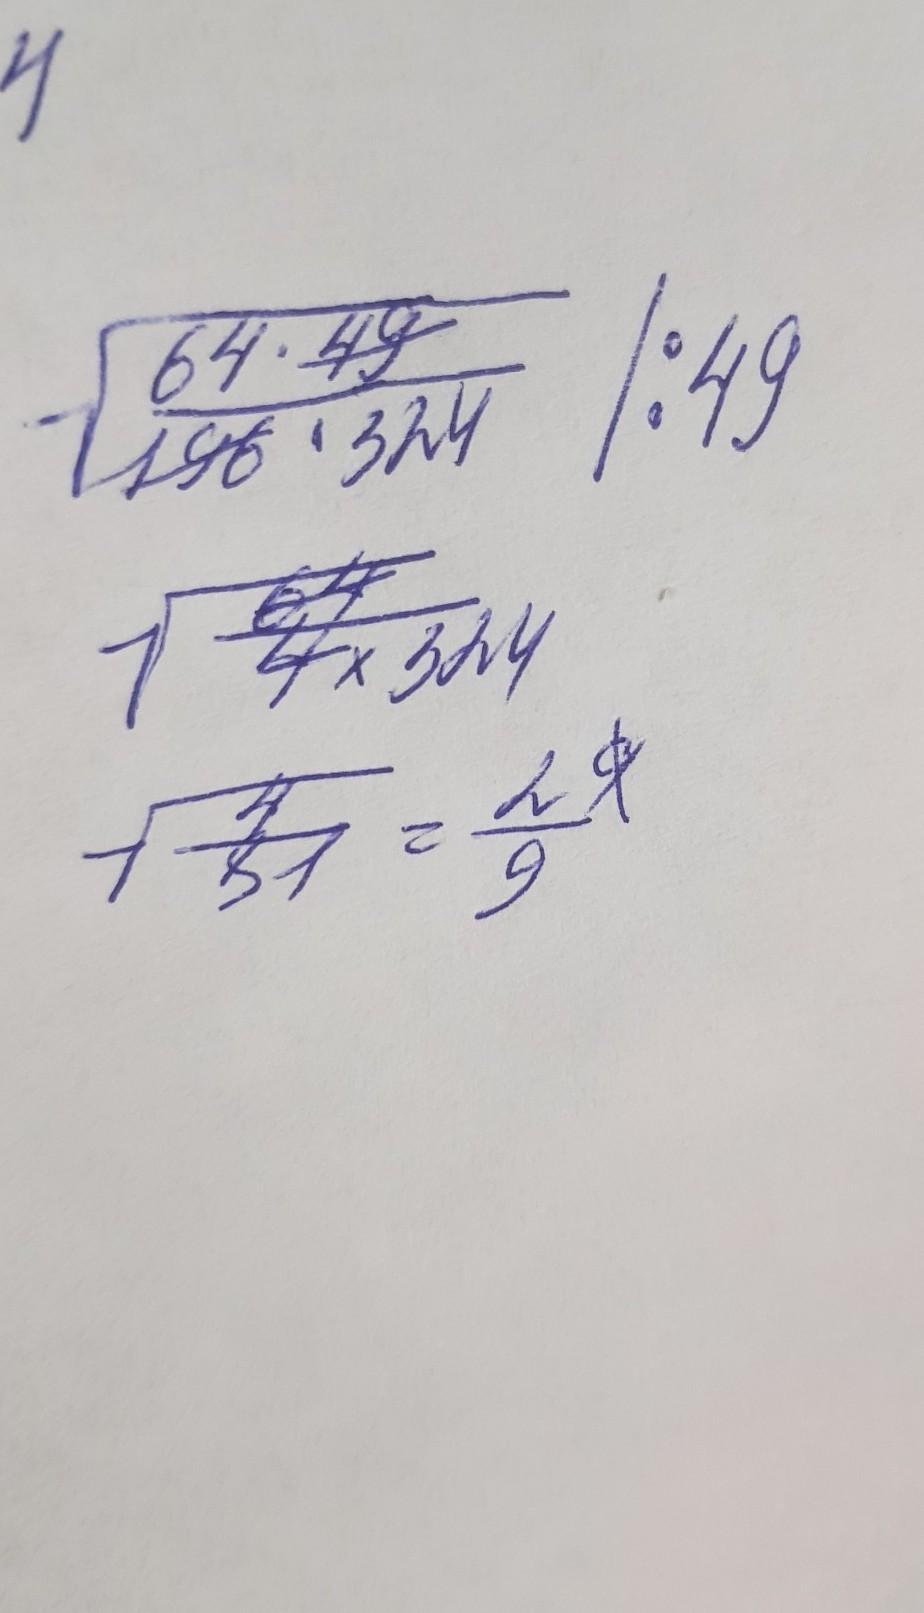 4
√(64 · 49 / 196 · 324) |:49
√(64 / 4 × 324)
√(4 / 81) = 2/9